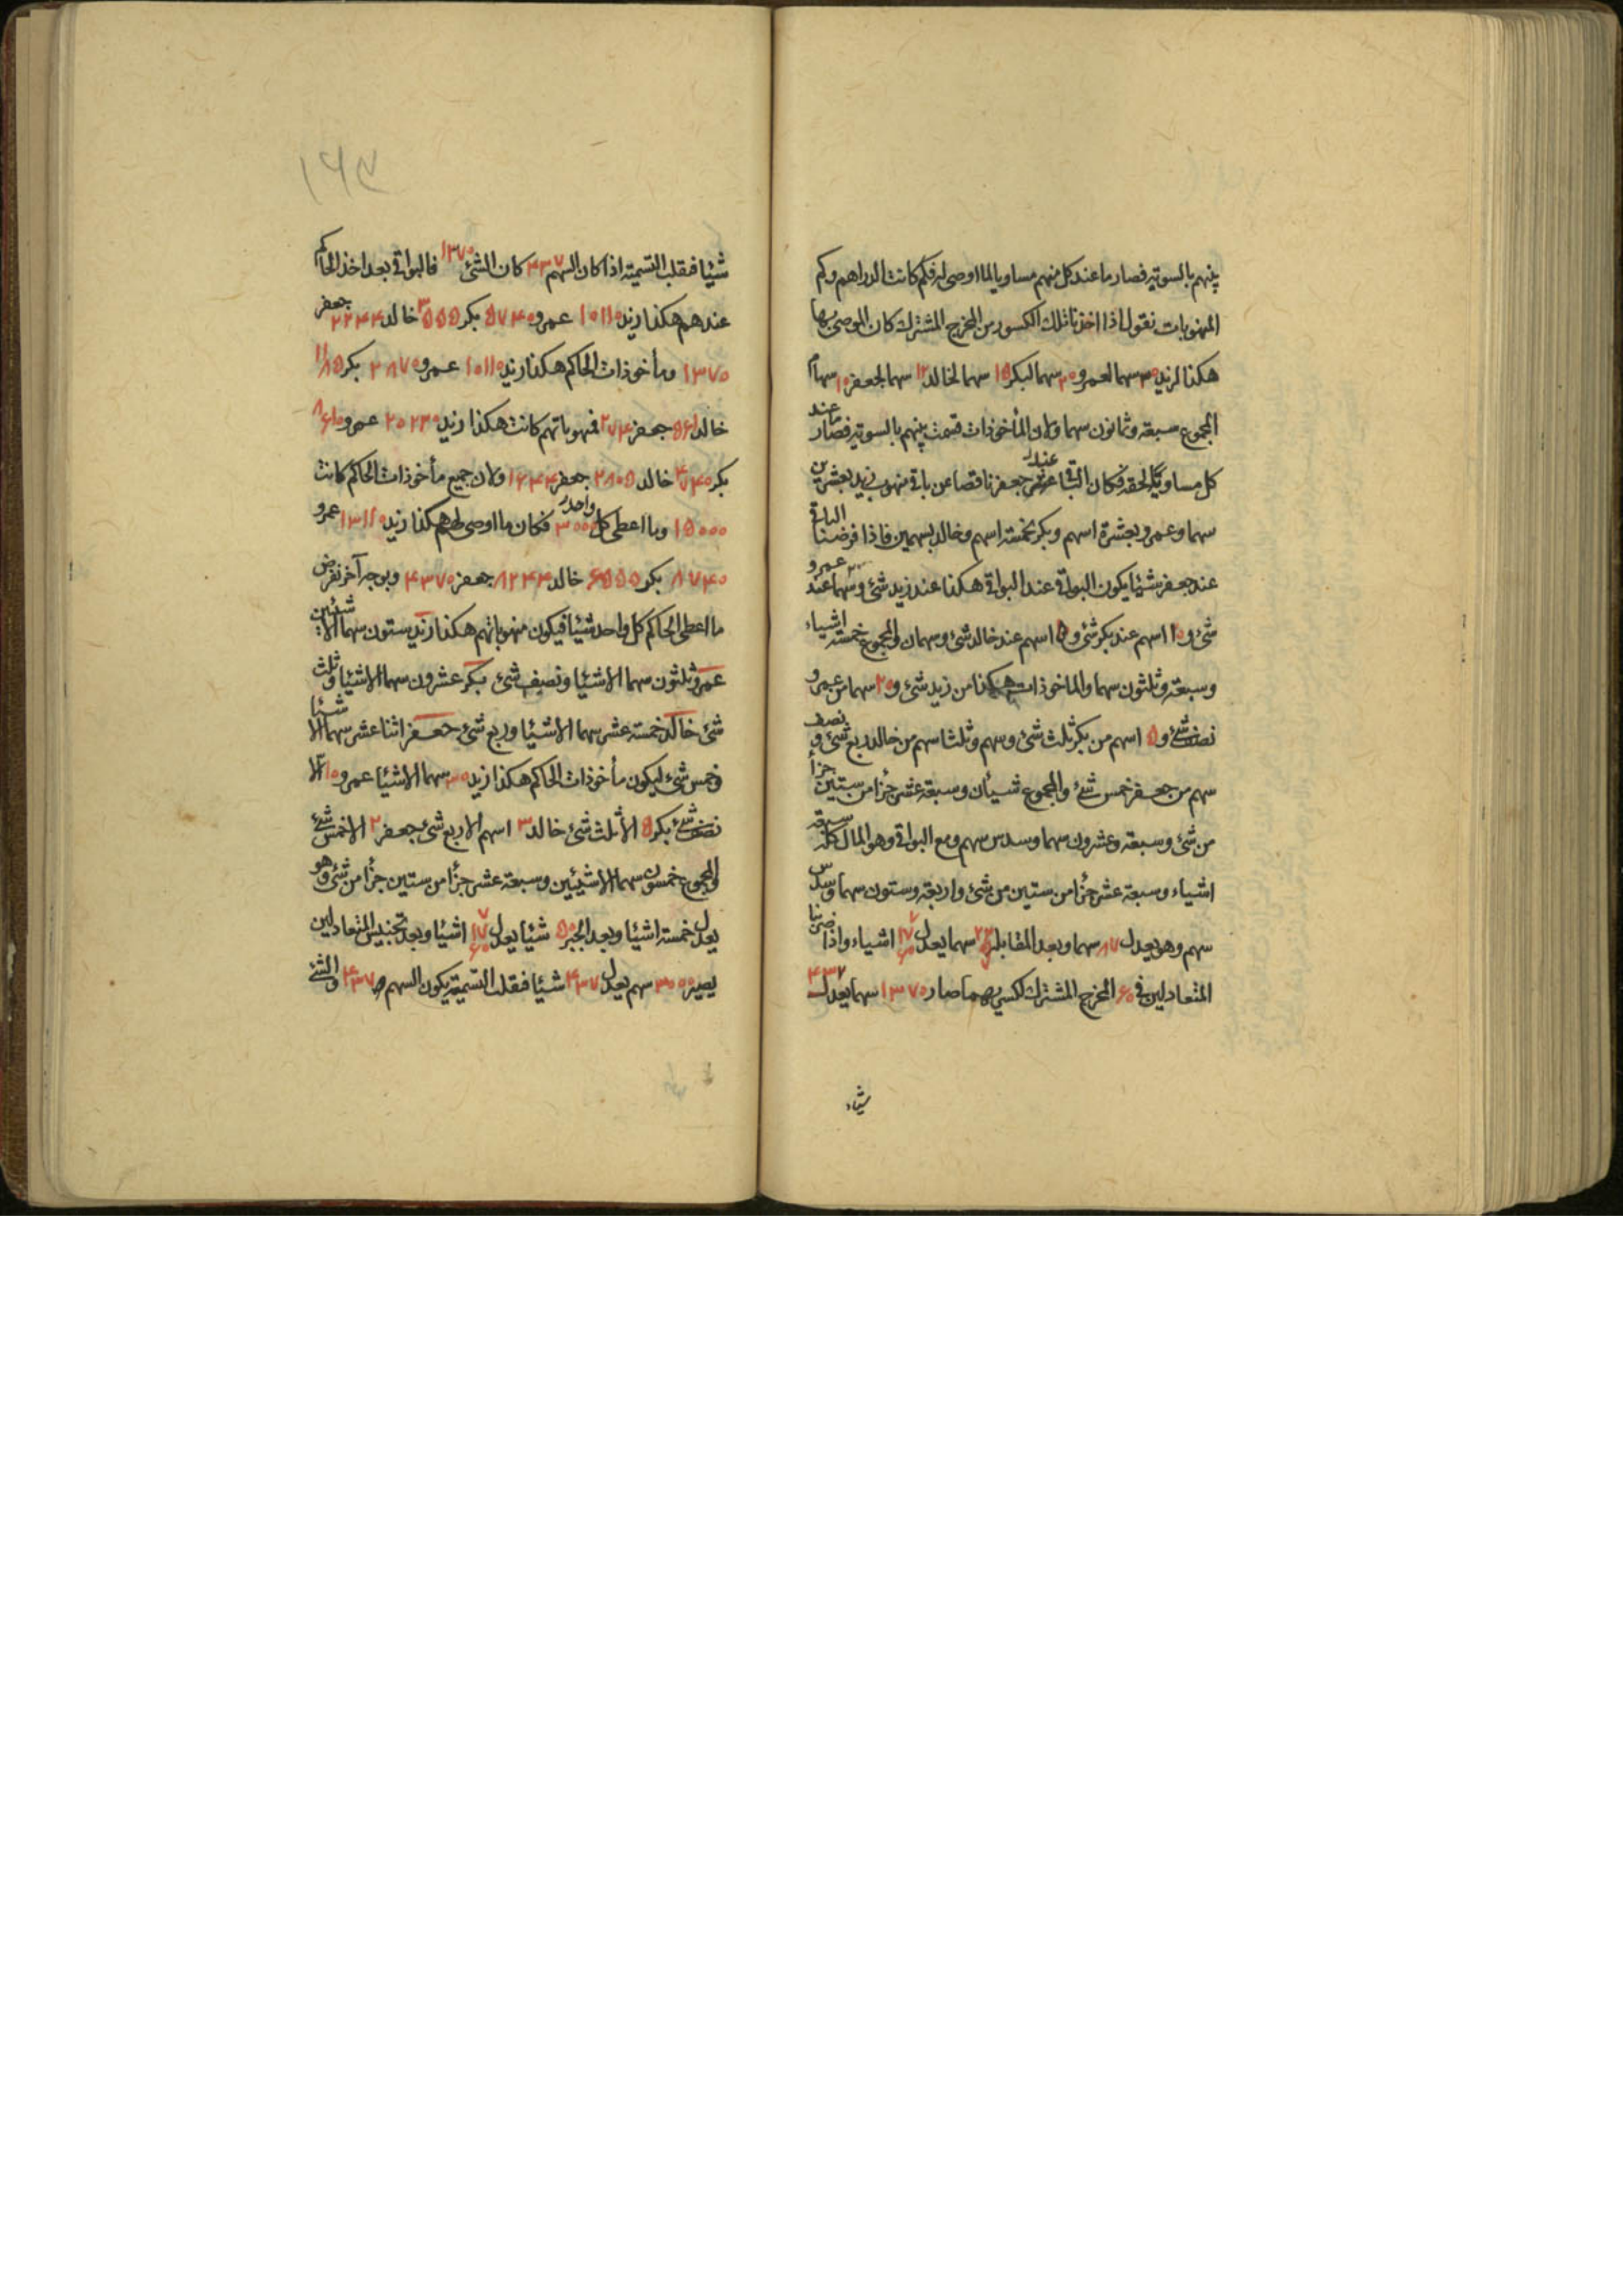 بينهم بالسوية فصار ما عند كل منهم مساويا لما اوصى له فكم كانت الدراهم وكم
المنهوبات نقول اذا اخذنا تلك الكسور من المخرج المشترك كان الموصى بها
هكذا لزيد ٣٠ سهما لعمرو ٢٠ سهما لبكر ١٥ سهما لخالد ١٢ سهما لجعفر ١٠ سهام
المجموع سبعة وثمانون سهما ولان المأخوذات قسمت بينهم بالسوية فصار ما عند
كل مساويا لحقه فكان الباقى عند جعفر ناقصا عن باقى منهوب زيد بعشرين
سهما وعمرو بعشرة اسهم وبكر بخمسة اسهم وخالد بسهمين فاذا فرضنا الباقى
عند جعفر شيئا يكون البواقى عند البواقى هكذا عند زيد شئ و ٢٠ سهما عند عمرو
شئ و ١٠ اسهم عند بكر شئ و ٥ اسهم عند خالد شئ وسهمان والمجموع خمسة اشياء
وسبعة وثلثون سهما والماخوذات هكذا من زيد شئ و ٢٠ سهما من عمرو
نصف شئ و ٥ اسهم من بكر ثلث شئ وسهم وثلثا سهم من خالد ربع شئ و نصف
سهم من جعفر خمس شئ والمجموع شيئان وسبعة عشر جزأ من ستين جزأ
من شئ وسبعة وعشرون سهما وسدس سهم ومع البواقى وهو المال كله سبعة
اشياء وسبعة عشر جزأ من ستين من شئ واربعة وستون سهما وسدس
سهم وهو يعدل ٨٧ سهما وبعد المقابلة ٢٢ ٥ ٦ سهما يعدل ٧ ١٧ ٦٠ اشياء واذا ضربنا
المتعادلين فى ٦٠ المخرج المشترك لكسريهما صار ١٣٧٠ سهما يعدل ٤٣٧
شيئا
١٦٩
شيئا فبقلب التسمية اذا كان السهم ٤٣٧ كان الشئ ١٣٧٠ فالبواقى بعد اخذ الحاكم
عندهم هكذا زيد ١٠١١٠ عمرو ٥٧٤٠ بكر ٣٥٥٥ خالد ٢٢٤٤ جعفر
١٣٧٠ ومأخوذات الحاكم هكذا زيد ١٠١١٠ عمرو ٢٨٧٠ بكر ١١٨٥
خالد ٥٦١ جعفر ٢٧٤ فمنهوباتهم كانت هكذا زيد ٢٠٢٢٠ عمرو ٨٦١٠
بكر ٤٧٤٠ خالد ٢٨٠٥ جعفر ١٦٤٤ ولان جميع مأخوذات الحاكم كانت
١٥٠٠٠ وما اعطى كل واحد ٣٠٠٠ فكان ما اوصى لهم هكذا زيد ١٣١١٠ عمرو
٨٧٤٠ بكر ٦٥٥٥ خالد ٥٢٤٤ جعفر ٤٣٧٠ وبوجه آخر نفرض
ما اعطى الحاكم كل واحد شيئا فيكون منهوباتهم هكذا زيد ستون سهما الا شيئين
عمرو ثلثون سهما الا شيئا ونصف شئ بكر عشرون سهما الا شيئا وثلث
شئ خالد خمسة عشر سهما الا شيئا وربع شئ جعفر اثنا عشر سهما الا شيئا
وخمس شئ ليكون مأخوذات الحاكم هكذا زيد ٣٠ سهما الا شيئا عمرو ١٠ الا
نصف شئ بكر ٥ الا ثلث شئ خالد ٣ اسهم الا ربع شئ جعفر ٢ الا خمس شئ
والمجموع خمسون سهما الا شيئين وسبعة عشر جزأ من ستين جزأ من شئ وهو
يعدل خمسة اشيئا وبعد الجبر ٥٠ شيئا يعدل ٧ ١٧ ٦٠ اشيئا وبعد تجنيس المتعادلين
يصير ٣٠٠٠ سهم يعدل ٤٣٧ شيئا فبقلب التسمية يكون السهم ٤٣٧ والشئ